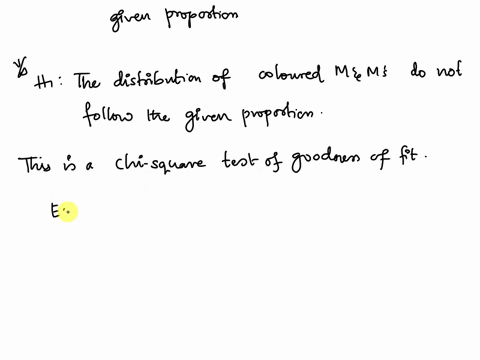 given proportion
H₁: The distribution of coloured M&Ms do not
follow the given proportion.
This is a chi-square test of goodness of fit.
E